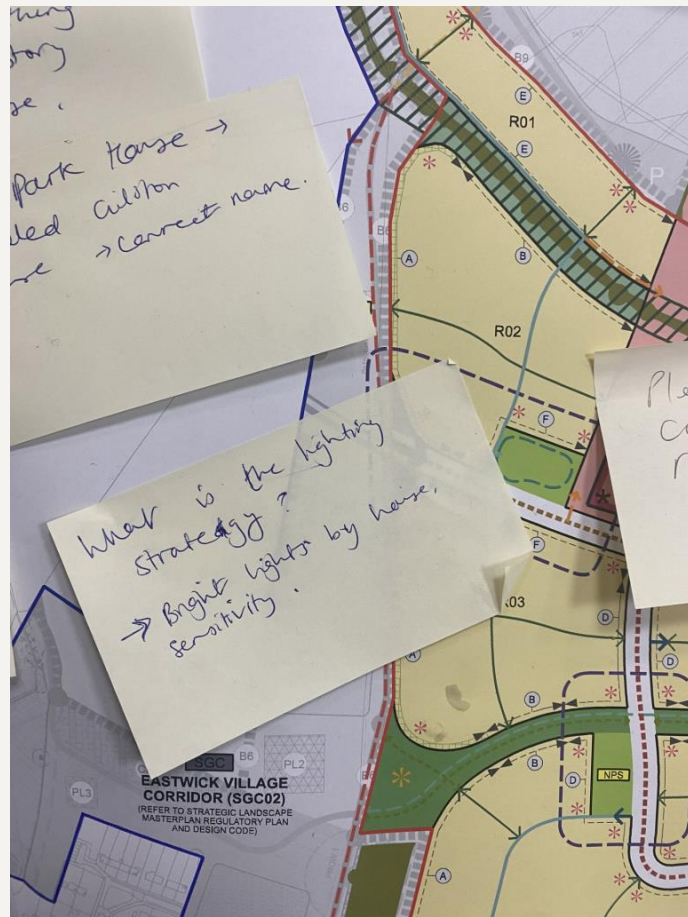 Park House →
→ Correct name.
What is the lighting
strategy?
→ Bright lights by house,
sensitivity.
B9
E
R01
E
P
B6
A
B
R02
F
F
D
R03
A
D
B
B
D
NPS
A
SGC
B6
PL2
PL3
EASTWICK VILLAGE
CORRIDOR (SGC02)
(REFER TO STRATEGIC LANDSCAPE
MASTERPLAN REGULATORY PLAN
AND DESIGN CODE)